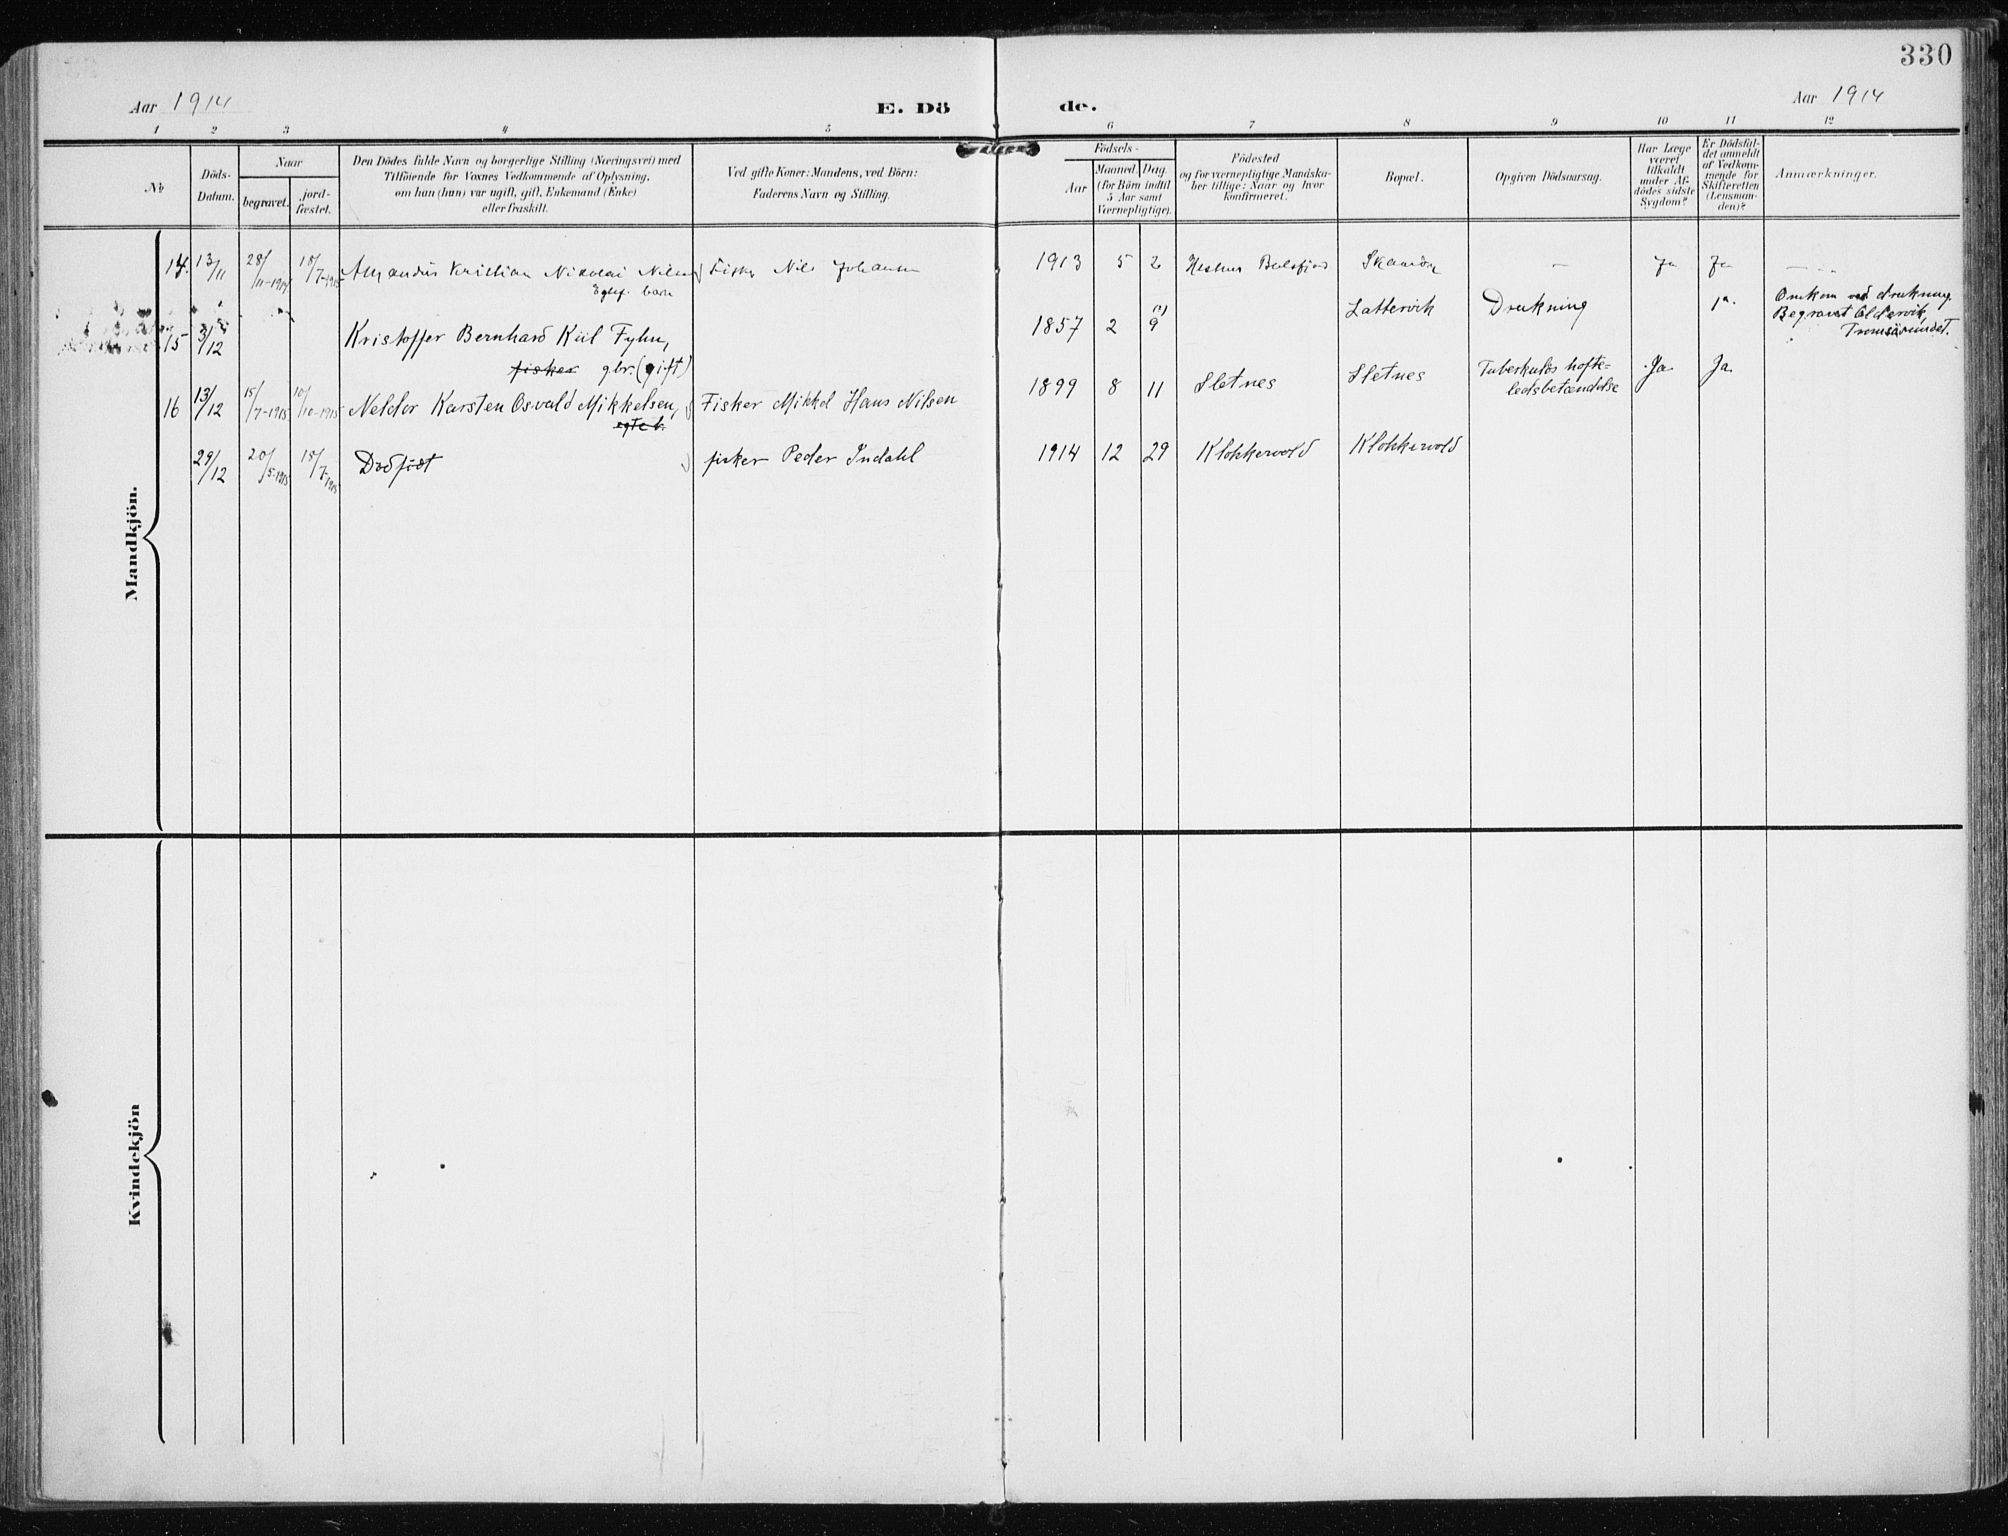 330
Aar 1914
E. Dö
de.
Aar 1914
1 2 3 4 5 6 7 8 9 10 11 12
No
Döds-
Datum.
Naar
begravet.
jord-
fæstet.
Den Dödes fulde Navn og borgerlige Stilling (Næringsvei) med
Tilföiende for Voxnes Vedkommende af Oplysning,
om han (hun) var ugift, gift, Enkemand (Enke)
eller fraskilt.
Ved gifte Koner: Mandens, ved Börn:
Faderens Navn og Stilling.
Födsels-
Aar
Maaned. Dag.
(for Börn indtil
5 Aar samt
Værnepligtige).
Födested
og for værnepligtige Mandska-
ber tillige: Naar og hvor
konfirmeret.
Bopæl.
Opgiven Dödsaarsag.
Har Læge
været
tilkaldt
under Af-
dödes sidste
Sygdom?
Er Dödsfal-
det anmeldt
af Vedkom-
mende for
Skifteretten
(Lensman-
den)?
Anmærkninger.
Mandkjön.
14. 13/11 28/11-1914 18/7-1915 Amandus Kristian Nikolai Nilsen Fisker Nils Johansen 1913 5 2 Balsfjord — Ja Ja
Egtef. barn
15 3/12 Kristoffer Bernhard Kiil Fyhn, 1857 2 9 Lattervik Drukning Ja. Omkom ved drukning.
Begravet Oldervik,
Tromsösundet.
fisker gbr. (gift)
16 13/12 15/7-1915 10/10-1915 Neldor Karsten Osvald Mikkelsen, Fisker Mikkel Hans Nilsen 1899 8 11 Sletnes Sletnes Tuberkuløs hofte=
ledsbetændelse Ja Ja
egte b.
29/12 20/5-1915 18/7-1915 Dødfødt fisker Peder Indahl 1914 12 29 Klokkervold Klokkervold
Kvindekjön